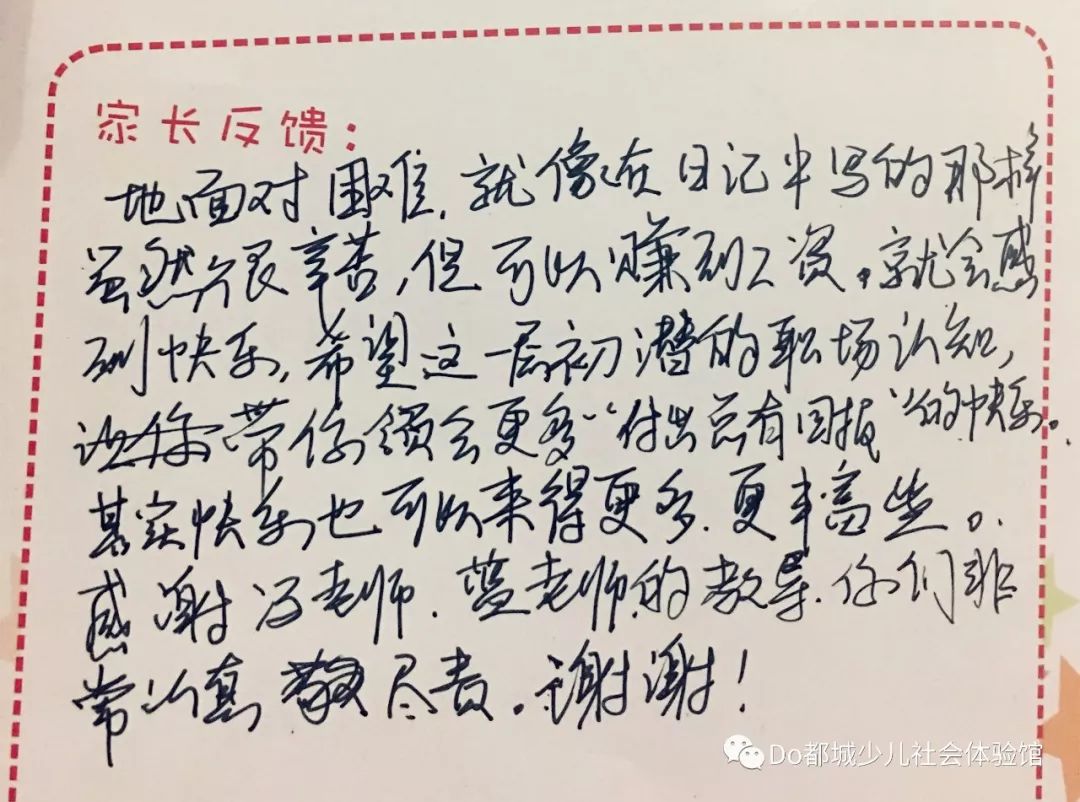 家长反馈：
地面对困难，就像在日记中写的那样
虽然很辛苦，但可以赚到工资，就会感
到快乐，希望这一层初潜的职场认知，
带你领会更多“付出总有回报”的快乐。
其实快乐也可以来得更多、更丰富些。
感谢冯老师、蓝老师的教导，你们非
常认真 尽责。谢谢！
Do都城少儿社会体验馆